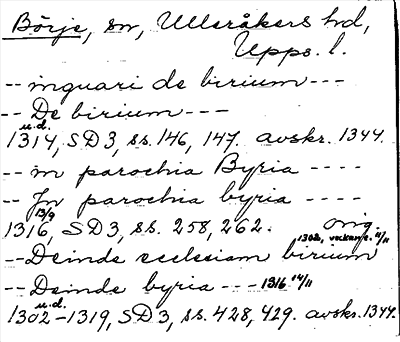 Börje, sn, Ulleråkers hd,
Upps. l.
-- inguari de birium ---
-- De birium ---
u.d.
1314, SD3, ss. 146, 147. avskr. 1344.
-- in parochia Byria ----
-- Jn parochia byria ----
13/9
1316, SD3, ss. 258, 262. orig.
1302, 11/11
-- Deinde ecclesiam birium
-- Deinde byria --- 1316 14/11
u.d.
1302-1319, SD3, ss. 428, 429. avskr. 1344.